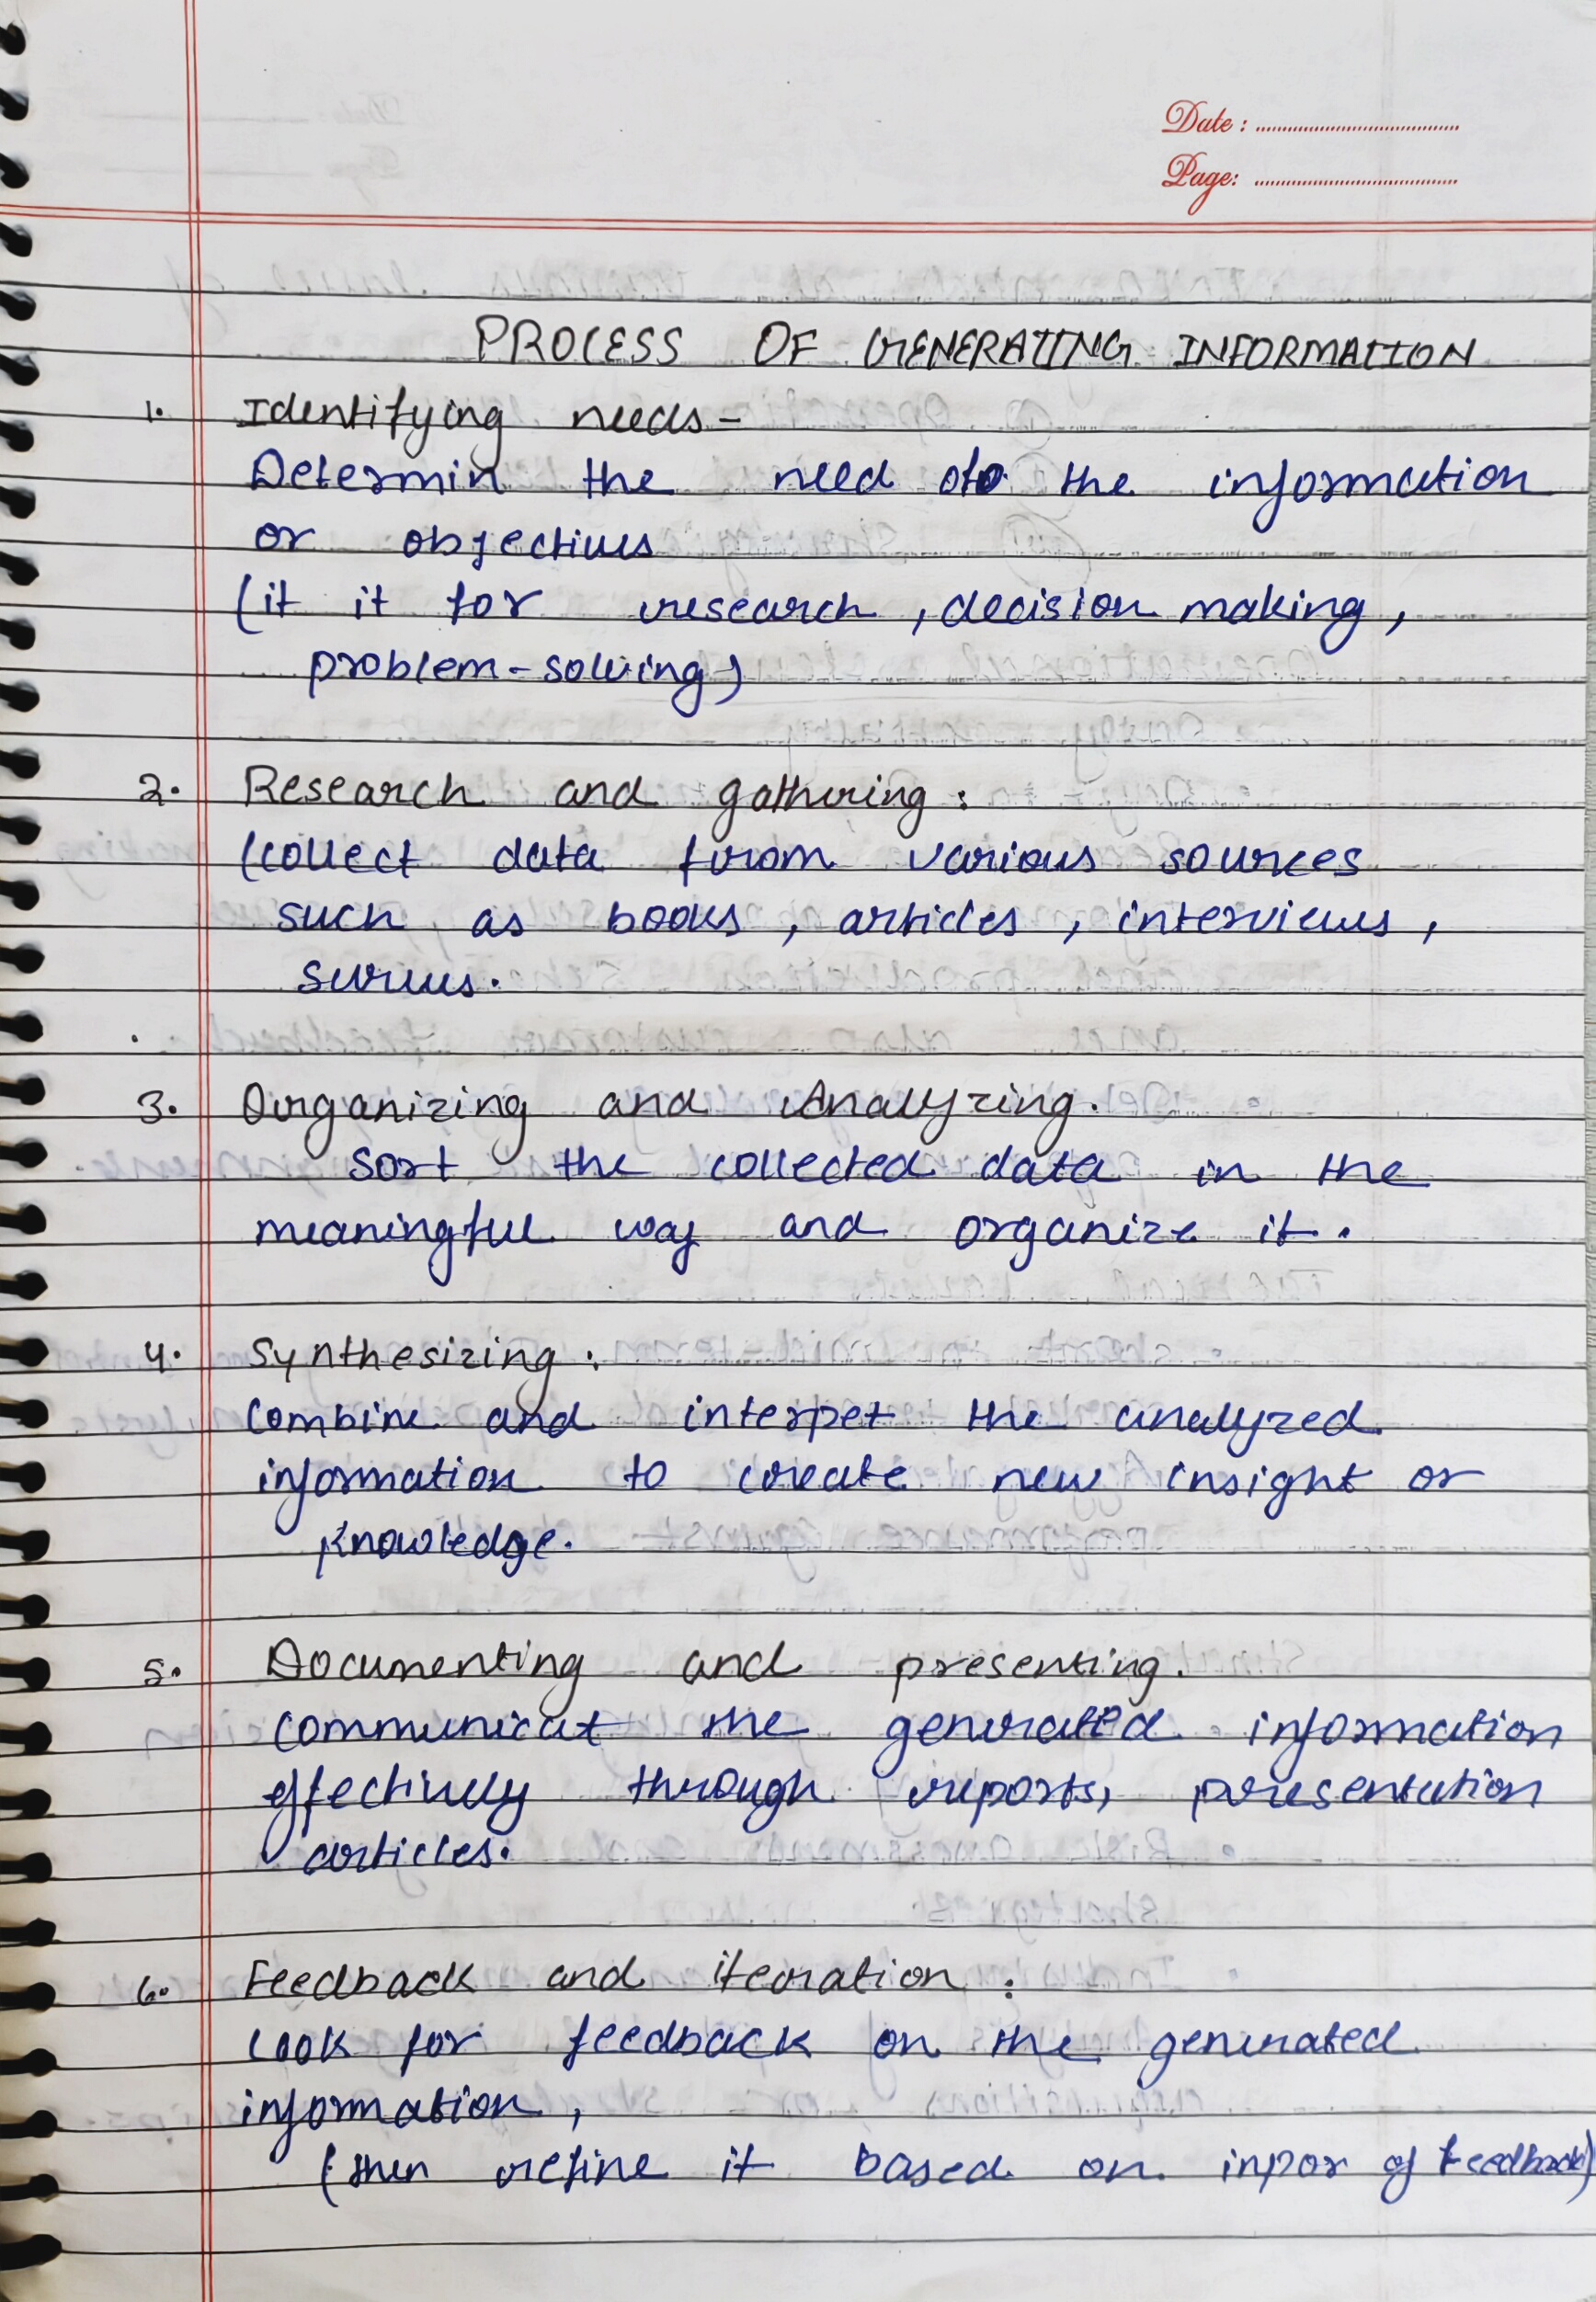 Date :
Page:
PROCESS OF GENERATING INFORMATION
1. Identifying needs -
Determin the need of the information
or objectives
(it it for research, decision making,
problem-solving)
2. Research and gathering :
(collect data from various sources
such as books, articles, interviews,
survus.
3. Organizing and Analyzing.
Sort the collected data in the
meaningful way and organize it.
4. Synthesizing :
Combine and interpet the analyzed
information to create new insight or
knowledge.
5. Documenting and presenting.
Communicat the generated information
effectively through reports, presentation
articles.
6. Feedback and iteration :
Look for feedback on the generated
information,
(then refine it based on of feedback)